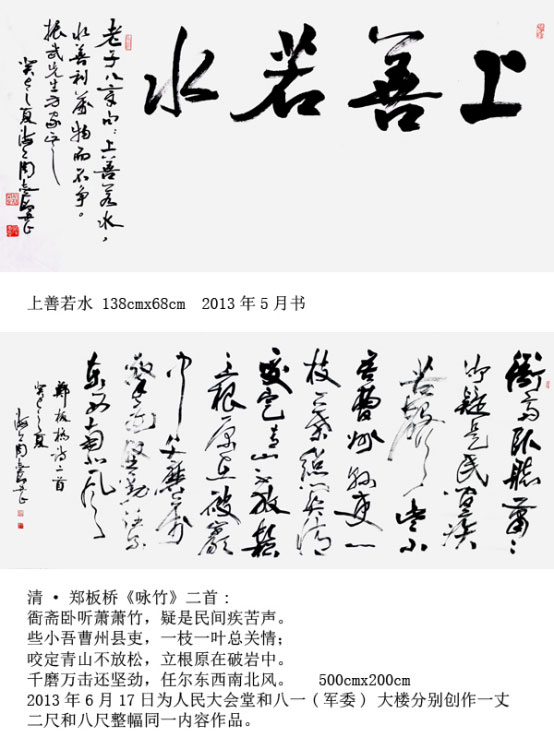 上善若水
老子八章句：上善若水，
水善利萬物而不争。
振武先生方家正之
癸巳之夏海上周
衙齋卧聽蕭〻
竹疑是民間疾
苦聲些小
吾曹州縣吏一
枝一葉總關情
咬定青山不放鬆
立根原在破巖
中千磨萬
擊還堅勁任爾
東西南北風
鄭板橋詩二首
癸巳之夏
海上周
上善若水 138cmx68cm 2013年5月书
清·郑板桥《咏竹》二首:
衙斋卧听萧萧竹，疑是民间疾苦声。
些小吾曹州县吏，一枝一叶总关情；
咬定青山不放松，立根原在破岩中。
千磨万击还坚劲，任尔东西南北风。 500cmx200cm
2013年6月17日为人民大会堂和八一(军委) 大楼分别创作一丈
二尺和八尺整幅同一内容作品。